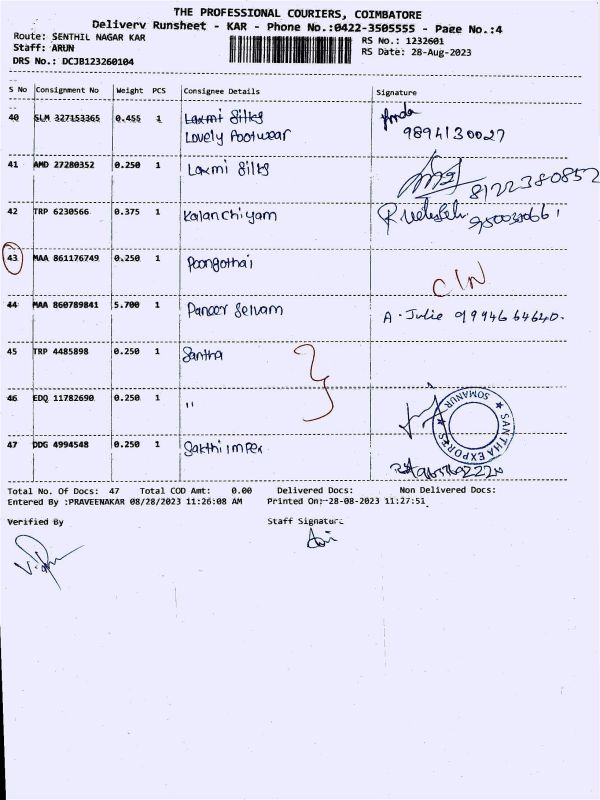 THE PROFESSIONAL COURIERS, COIMBATORE
Delivery Runsheet - KAR - Phone No.:0422-3505555 - Page No.:4
Route: SENTHIL NAGAR KAR
Staff: ARUN
DRS No.: DCJB123260104
RS No.: 1232601
RS Date: 28-Aug-2023
S No Consignment No Weight PCS Consignee Details Signature
40 SLM 327153365 0.455 1 Laxmi Silks
Lovely Footwear 9894130027
41 AMD 27280352 0.250 1 Laxmi Silks 8122380852
42 TRP 6230566 0.375 1 Kalanchiyam
43 MAA 861176749 0.250 1 Poongothai C/N
44 MAA 860789841 5.700 1 Paneer Selvam A. Julie 9994664640.
45 TRP 4485898 0.250 1 Santha
46 EDQ 11782690 0.250 1 "
SANTHA EXPORTS ★ SOMANUR ★
47 DDG 4994548 0.250 1 Sakthi Impex
Total No. Of Docs: 47 Total COD Amt: 0.00 Delivered Docs: Non Delivered Docs:
Entered By :PRAVEENAKAR 08/28/2023 11:26:08 AM Printed On:-28-08-2023 11:27:51
Verified By Staff Signature